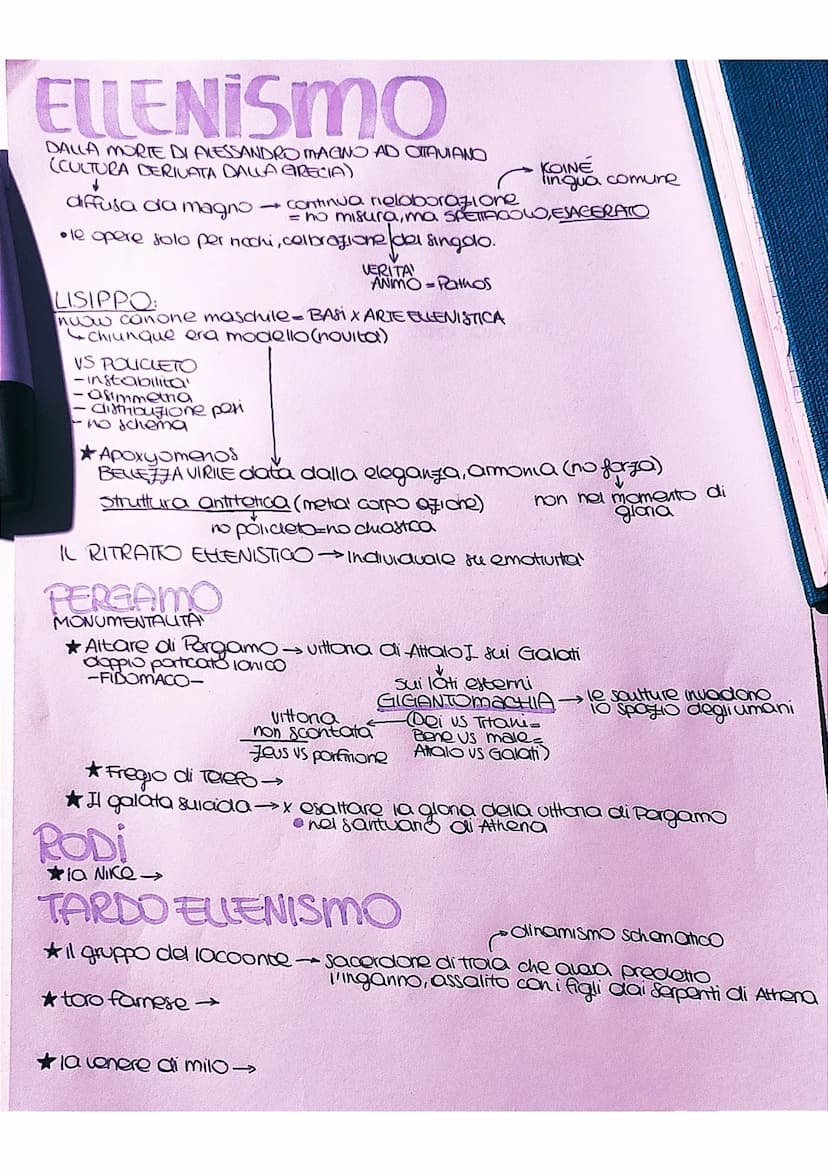 ELLENISMO
DALLA MORTE DI ALESSANDRO MAGNO AD OTTAVIANO
(CULTURA DERIVATA DALLA GRECIA)
KOINÉ
lingua comune
diffusa da magno → continua rielaborazione
= no misura, ma SPETTACOLO, ESAGERATO
• le opere solo per ricchi, celbrazione del singolo.
VERITA'
ANIMO = Pathos
LISIPPO:
nuovo canone maschile = BASI x ARTE ELLENISTICA
↳ chiunque era modello (novita')
VS POLICLETO
- instabilita'
- asimmetria
- distribuzione pesi
- no schema
★ Apoxyomenos
BELLEZZA VIRILE data dalla eleganza, armonia (no forza)
struttura antitetica (meta' corpo azione)
non nel momento di
gloria
no policleto = no chiastica
IL RITRATTO ELLENISTICO → Individuale su emotivita'
PERGAMO
MONUMENTALITA'
★ Altare di Pergamo → vittoria di Attalo I sui Galati
doppio porticato ionico
- FIDOMACO -
sui lati esterni
GIGANTOMACHIA → le sculture invadono
lo spazio degli umani
vittoria
non scontata
Zeus vs porfirione
(Dei vs Titani =
Bene vs male =
Attalo vs Galati)
★ Fregio di Telefo →
★ Il galata suicida → x esaltare la gloria della vittoria di Pergamo
• nel santuario di Athena
RODI
★ la Nike →
TARDO ELLENISMO
dinamismo schematico
★ il gruppo del locoonte → sacerdone di troia che aveva predetto
l'inganno, assalito con i figli dai serpenti di Athena
★ toro farnese →
★ la venere di milo →